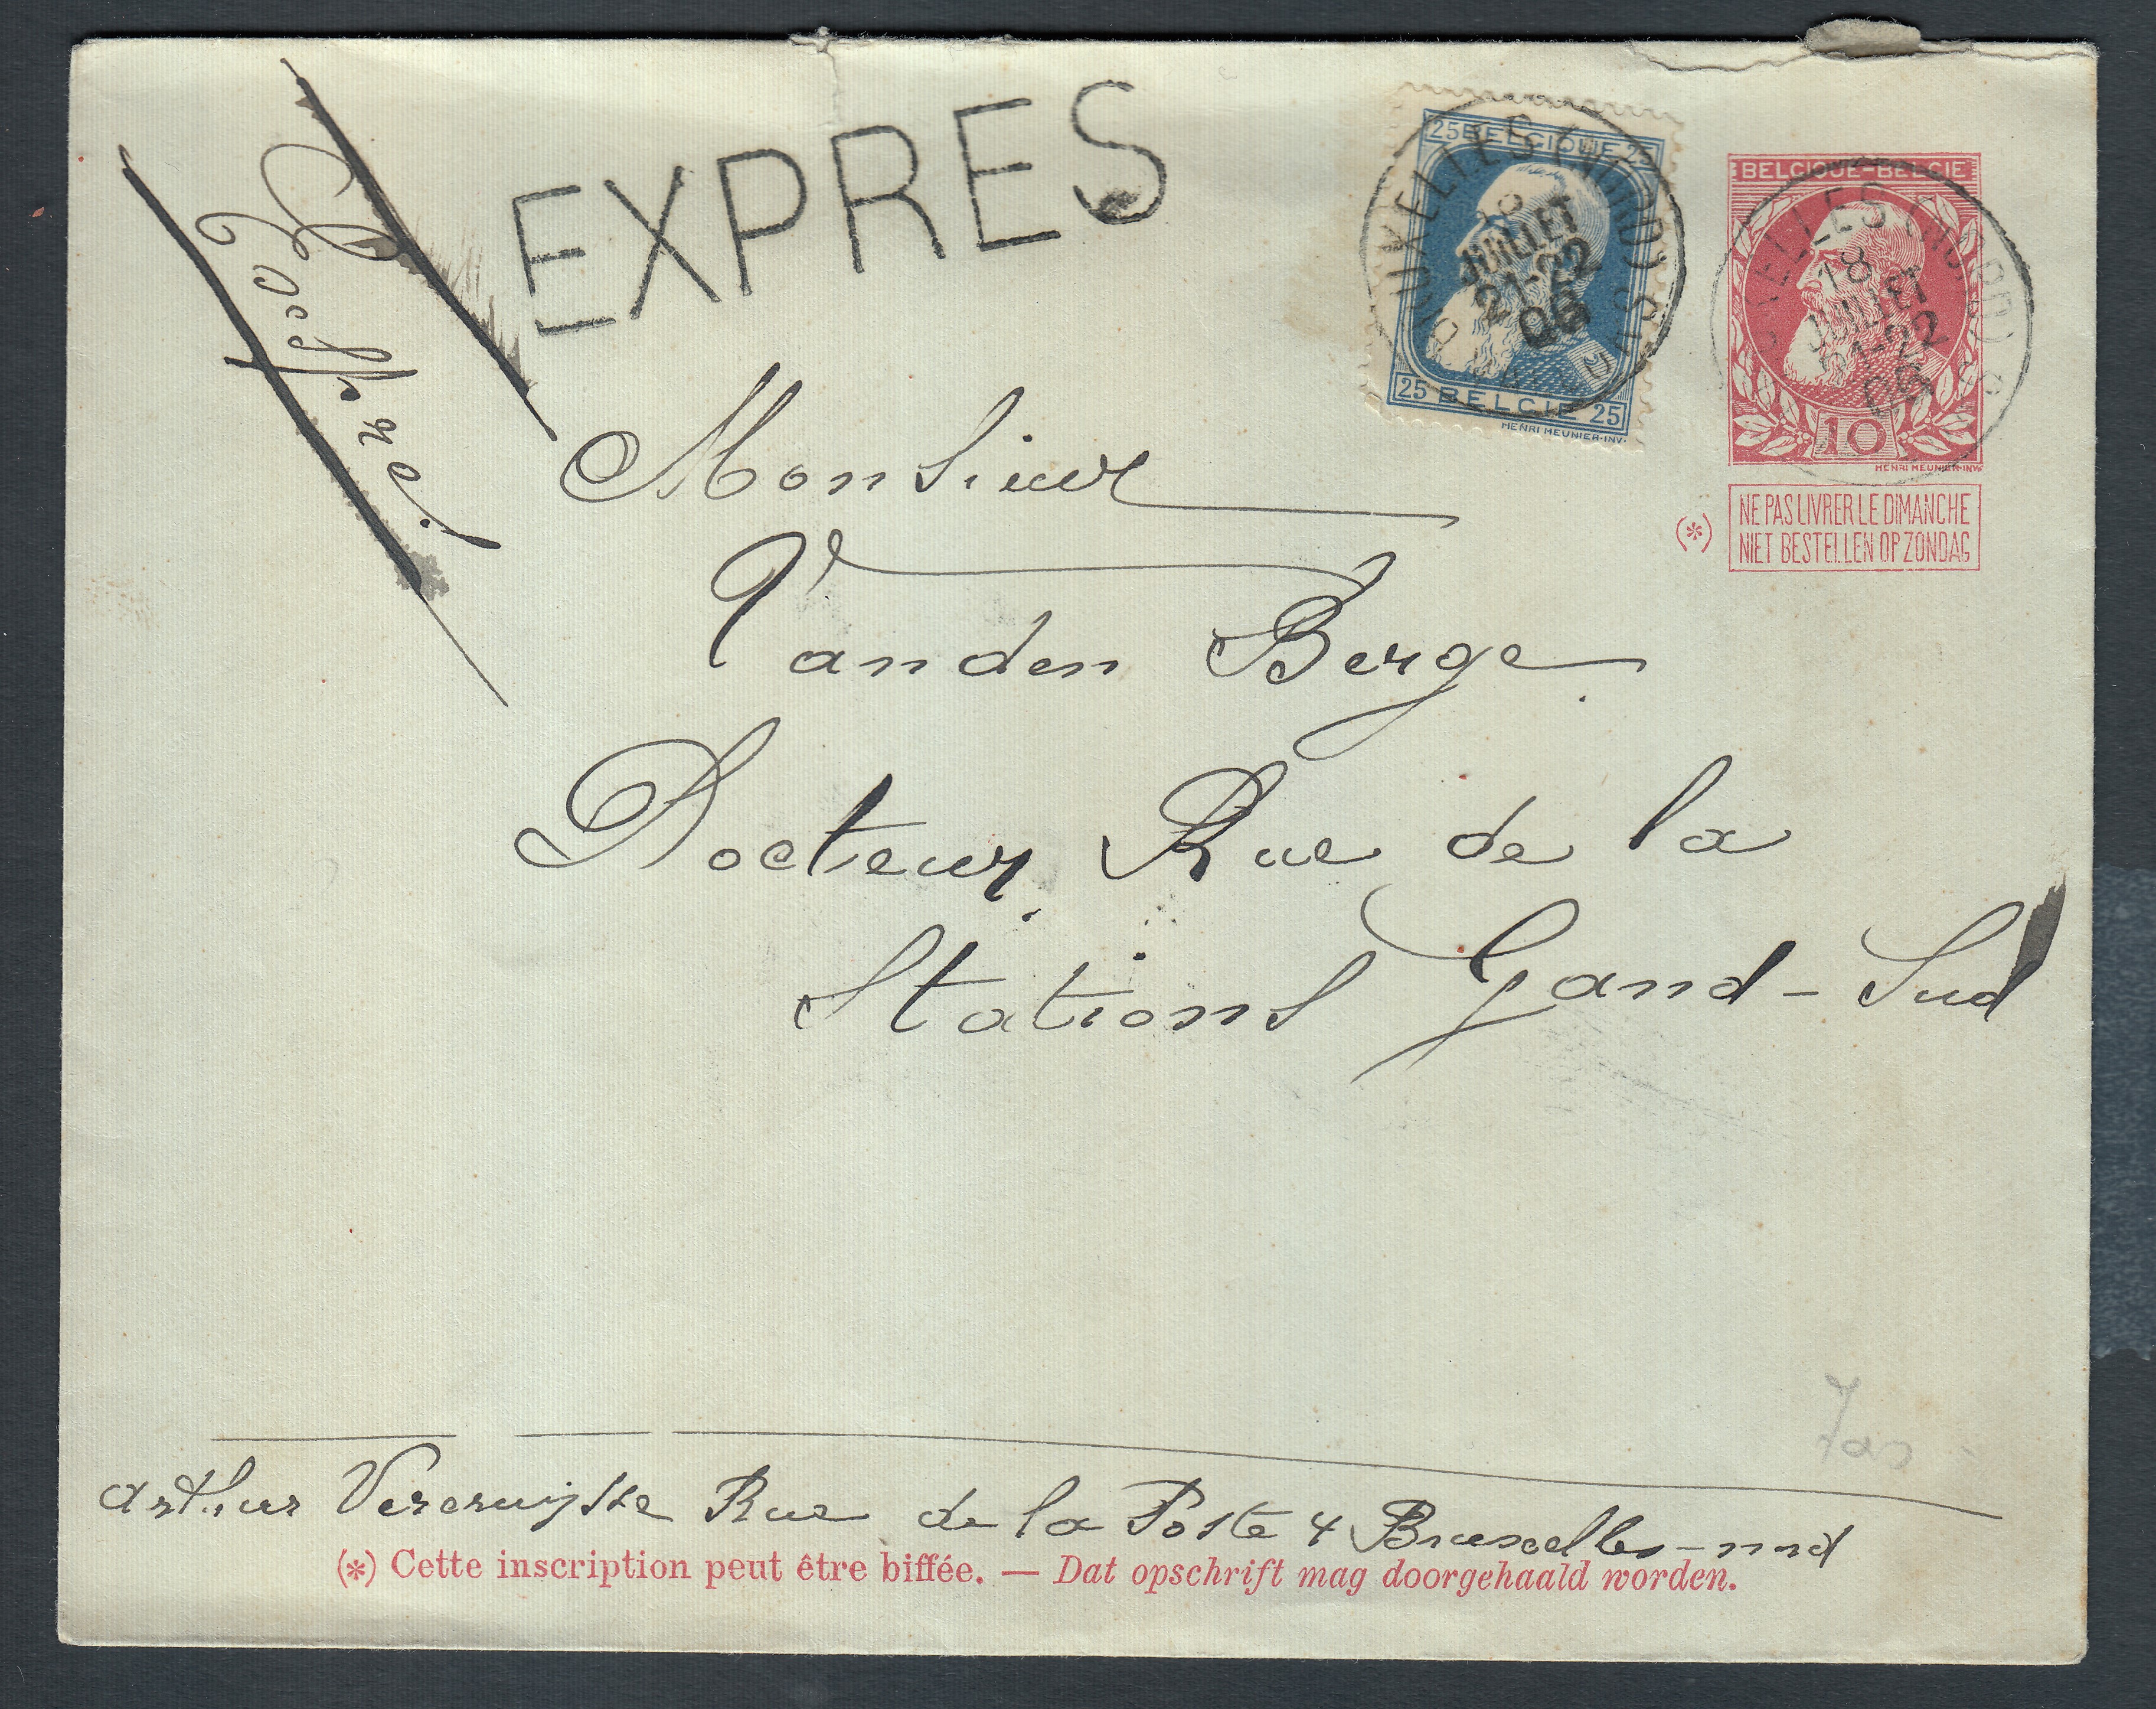 Exprè
EXPRES
25 BELGIQUE 25
BRUXELLES (NORD)
18
JUILLET
21-22
06
25 BELGIE 25
HENRI MEUNIER·INV·
BELGIQUE-BELGIE
18
JUILLET
21-22
06
10
HENRI MEUNIER·INV·
(*) NE PAS LIVRER LE DIMANCHE
NIET BESTELLEN OP ZONDAG
Monsieur
Vanden Berge
Docteur Rue de la
Stations Gand-Sud
Arthur Vercruijsse Rue de la Poste 4 Bruxelles-nord
(*) Cette inscription peut être biffée. — Dat opschrift mag doorgehaald worden.